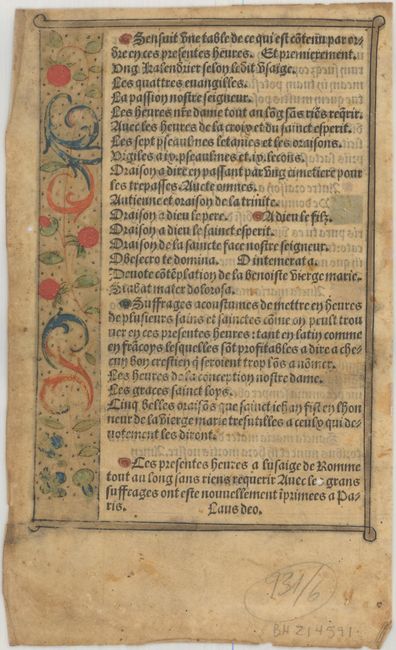 Sensuit vne table de ce qui est cōtenu par or-
dre en ces presentes heures. Et premierement.
Vng kalendrier selon ledit vsaige.
Les quattres euangilles.
La passion nostre seigneur.
Les heures nr̄e dame tout au lōg sās riēs reqrir.
Auec les heures de la croix et du sainct esperit.
Les sept pseaulmes letanies et les oraisons.
Vigiles a ix. pseaulmes et ix. lecons.
Oraison a dire en passant par vng cimetiere pour
les trespasses. Auete omnes.
Antienne et oraison de la trinite.
Oraison a dieu le pere. A dieu le filz.
Oraison a dieu le sainct esperit.
Oraison de la saincte face nostre seigneur.
Obsecro te domina. O intemerata.
Deuote cōtēplation de la benoiste vierge marie.
Stabat mater dolorosa.
Suffrages acoustumes de mettre en heures
de plusieurs sains et sainctes cōme on peult trou
uer en ces presentes heures: tant en latin comme
en frācoys lesquelles sōt proffitables a dire a che-
cun bon crestien q seroient trop lōs a nōmer.
Les heures de la conception nostre dame.
Les graces sainct loys.
Cinq belles oraisōs que sainct iehan fist en lhon
neur de la vierge marie tresutilles a ceulx qui de-
uotement les diront.
Ces presentes heures a lusaige de Romme
tout au long sans riens requerir Auec les grans
suffrages ont este nouuellement īprimees a Pa-
ris. Laus deo.
931/6
BH 214591